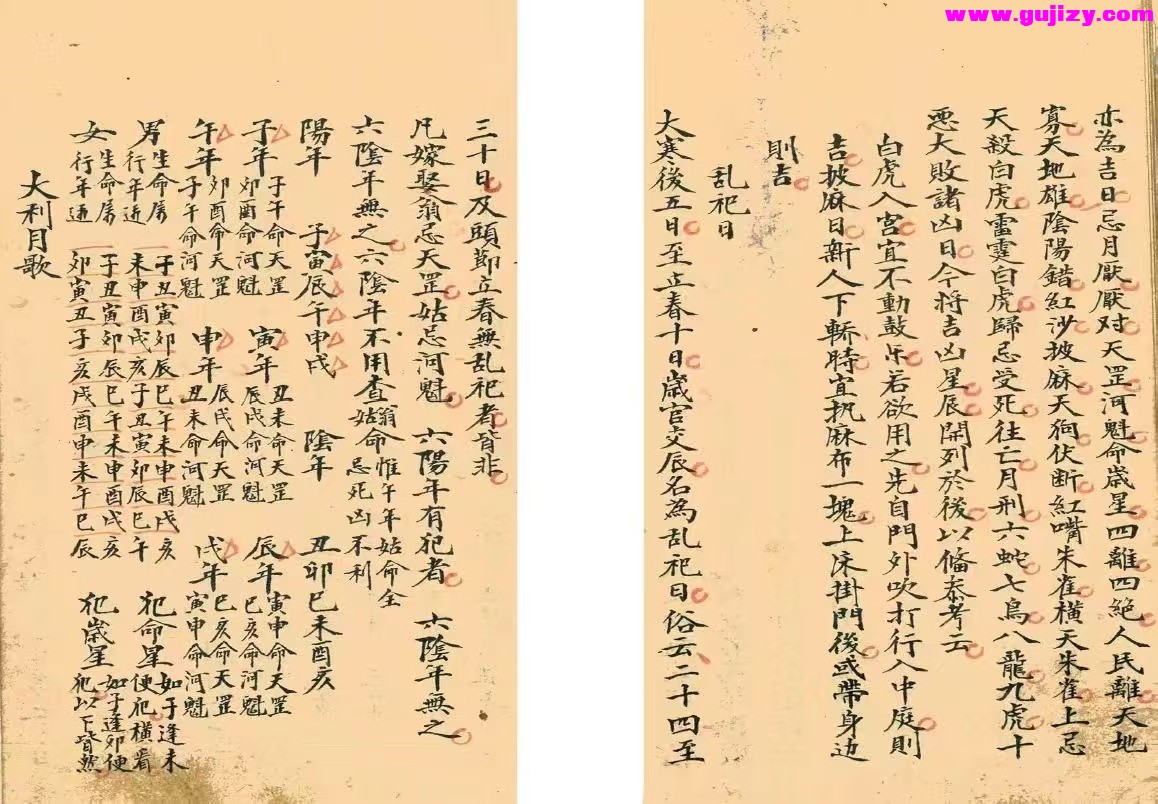 www.gujizy.com
亦為吉日忌月厭厭对天罡河魁命歲星四離四絕人民離天地
寡天地雄陰陽錯紅沙披麻天狗伏断紅嘴朱雀横天朱雀上忌
天殺白虎雷霆白虎歸忌受死往亡月刑六蛇七鳥八龍九虎十
悪大敗諸凶日今将吉凶星辰開列於後以俻叅考云
白虎入宫宜不動鼓乐若欲用之先自門外吹打行入中庭則
吉披麻日新人下轎時宜执麻布一塊上床掛門後或帶身边
則吉
乱祀日
大寒後五日至立春十日歲官交辰名為乱祀日俗云二十四至
三十日及頭節立春無乱祀者皆非
凡嫁娶翁忌天罡姑忌河魁 六陽年有犯者 六陰年無之
六陰年無之六陰年不用查 翁命惟午年姑命全 姑忌死凶不利
陽年 子寅辰午申戌 陰年 丑卯巳未酉亥
子年 子午命天罡 卯酉命河魁 寅年 丑未命天罡 辰戌命河魁 辰年 寅申命天罡 巳亥命河魁
午年 卯酉命天罡 子午命河魁 申年 辰戌命天罡 丑未命河魁 戌年 巳亥命天罡 寅申命河魁
男 生命属 子丑寅卯辰巳午未申酉戌亥 行年逢 未申酉戌亥子丑寅卯辰巳午 犯命星 如子逢未 便犯横看
女 生命属 子丑寅卯辰巳午未申酉戌亥 行年逢 卯寅丑子亥戌酉申未午巳辰 犯歲星 如子逢卯便 犯以下皆然
大利月歌